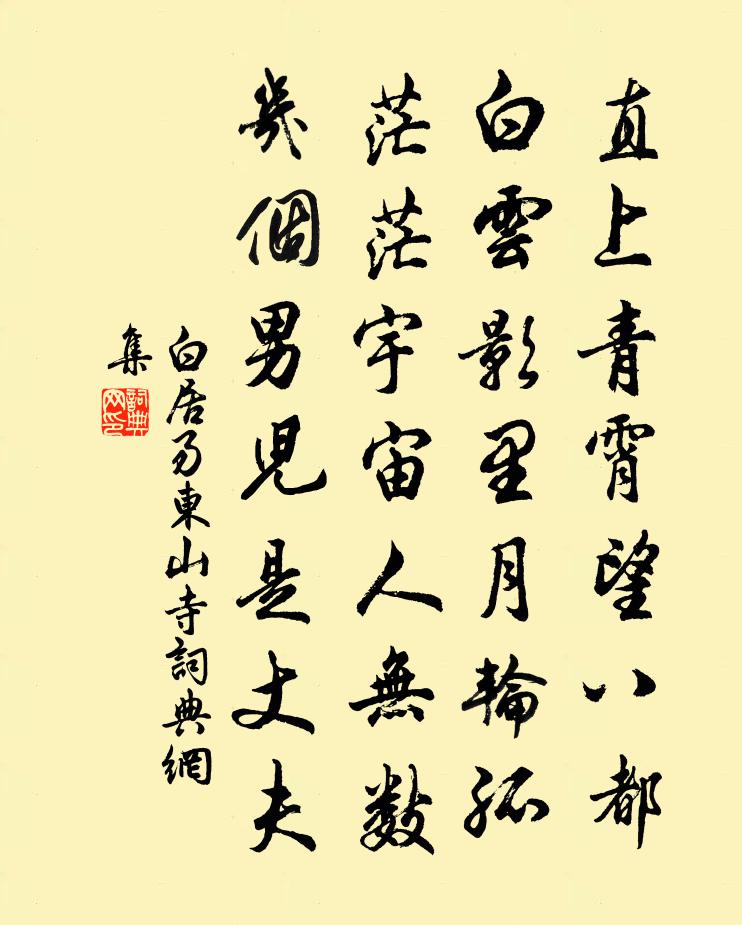 直上青霄望八都
白雲影里月輪孤
茫茫宇宙人無數
幾個男兒是丈夫
白居易東山寺詞典網
集
詞典網印